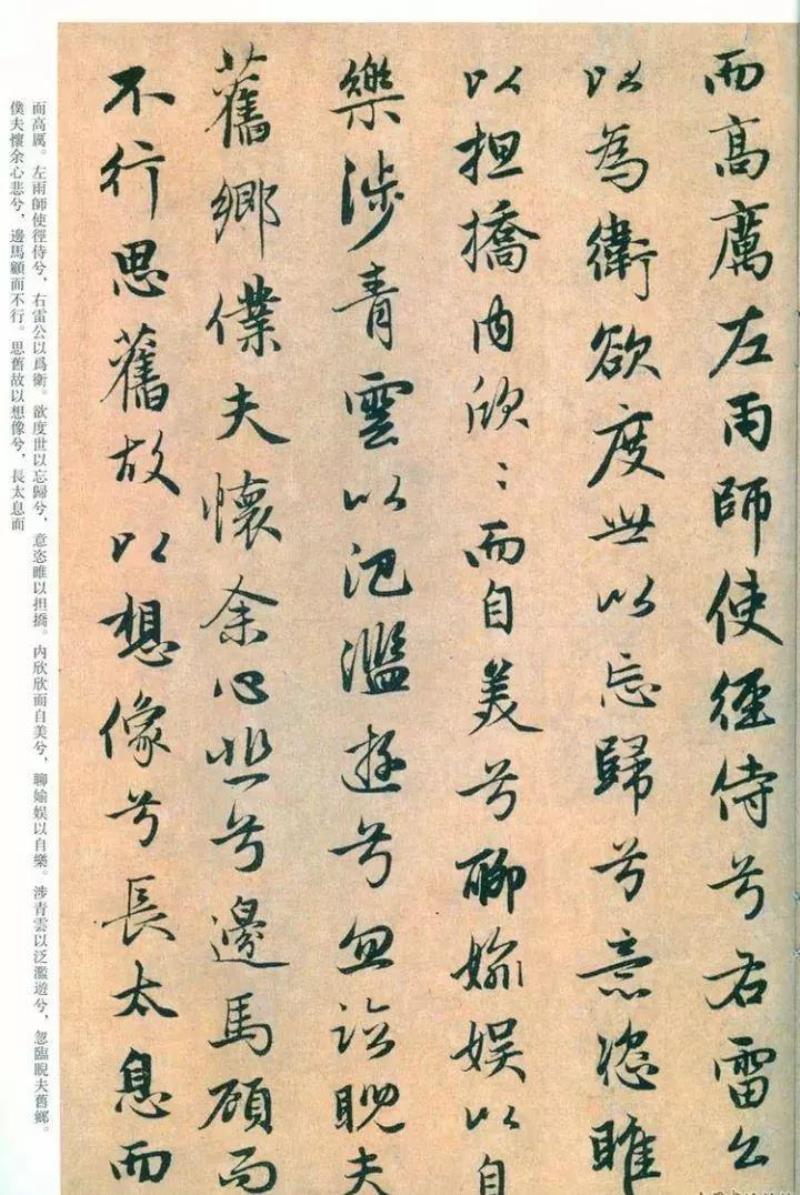 而高厲左雨師使徑侍兮右雷公
以為衛欲度世以忘歸兮意恣睢
以担撟内欣〻而自美兮聊媮娛以自
樂涉青雲以氾濫遊兮忽臨睨夫
舊鄉僕夫懷余心悲兮邊馬顧而
不行思舊故以想像兮長太息而
而高厲。左雨師使徑侍兮，右雷公以爲衛。欲度世以忘歸兮，意恣睢以担撟。内欣欣而自美兮，聊媮娛以自樂。涉青雲以泛濫遊兮，忽臨睨夫舊鄉。
僕夫懷余心悲兮，邊馬顧而不行。思舊故以想像兮，長太息而